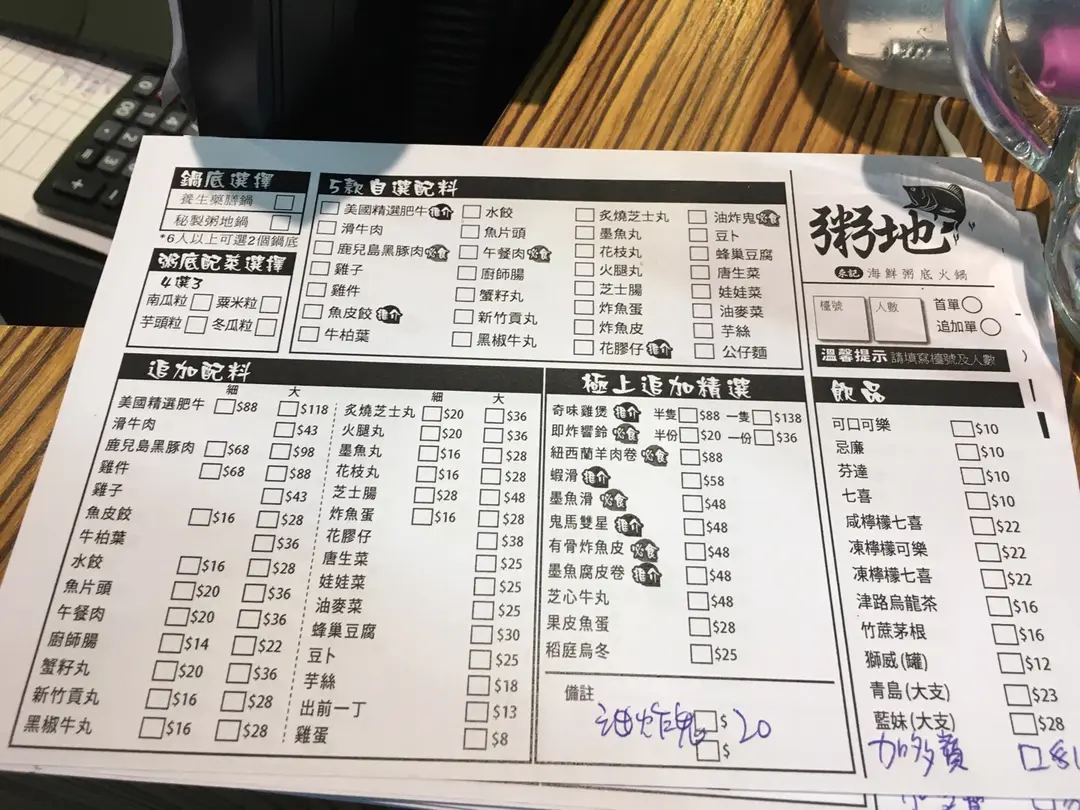 鍋底選擇
養生藥膳鍋
秘製粥地鍋
*6人以上可選2個鍋底
粥底配菜選擇
4選3
南瓜粒 粟米粒
芋頭粒 冬瓜粒
5款自選配料
美國精選肥牛 推介
滑牛肉
鹿兒島黑豚肉 必食
雞子
雞件
魚皮餃 推介
牛柏葉
水餃
魚片頭
午餐肉 必食
廚師腸
蟹籽丸
新竹貢丸
黑椒牛丸
炙燒芝士丸
墨魚丸
花枝丸
火腿丸
芝士腸
炸魚蛋
炸魚皮
花膠仔 推介
油炸鬼 必食
豆卜
蜂巢豆腐
唐生菜
娃娃菜
油麥菜
芋絲
公仔麵
粥地
海鮮粥底火鍋
檯號 人數 首單
追加單
溫馨提示 請填寫檯號及人數
追加配料
細 大
美國精選肥牛 $88 $118
滑牛肉 $43
鹿兒島黑豚肉 $68 $98
雞件 $68 $88
雞子 $43
魚皮餃 $16 $28
牛柏葉 $36
水餃 $16 $28
魚片頭 $20 $36
午餐肉 $20 $36
廚師腸 $14 $22
蟹籽丸 $20 $36
新竹貢丸 $16 $28
黑椒牛丸 $16 $28
細 大
炙燒芝士丸 $20 $36
火腿丸 $20 $36
墨魚丸 $16 $28
花枝丸 $16 $28
芝士腸 $28 $48
炸魚蛋 $16 $28
花膠仔 $38
唐生菜 $25
娃娃菜 $25
油麥菜 $25
蜂巢豆腐 $30
豆卜 $25
芋絲 $18
出前一丁 $13
雞蛋 $8
極上追加精選
奇味雞煲 推介 半隻 $88 一隻 $138
即炸響鈴 必食 半份 $20 一份 $36
紐西蘭羊肉卷 必食 $88
蝦滑 推介 $58
墨魚滑 必食 $48
鬼馬雙星 推介 $48
有骨炸魚皮 必食 $48
墨魚腐皮卷 推介 $48
芝心牛丸 $48
果皮魚蛋 $28
稻庭烏冬 $25
備註
油炸鬼 $ 20
$
飲品
可口可樂 $10
忌廉 $10
芬達 $10
七喜 $10
咸檸檬七喜 $22
凍檸檬可樂 $22
凍檸檬七喜 $22
津路烏龍茶 $16
竹蔗茅根 $16
獅威(罐) $12
青島(大支) $23
藍妹(大支) $28
加多寶